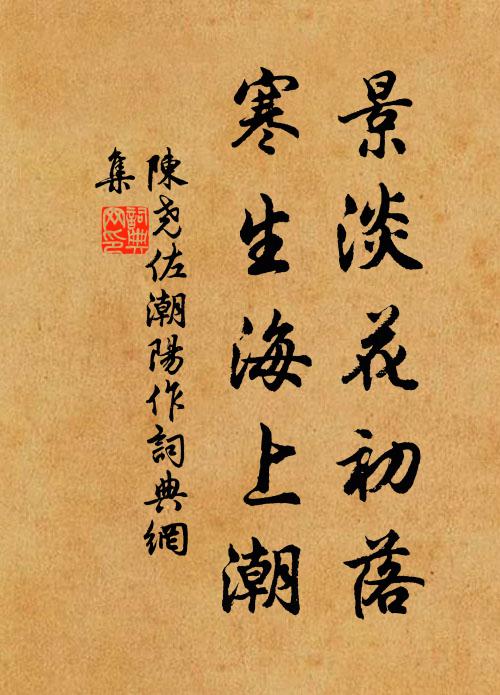 景淡花初落
寒生海上潮
陳堯佐潮陽作詞典網
集
詞典
网印